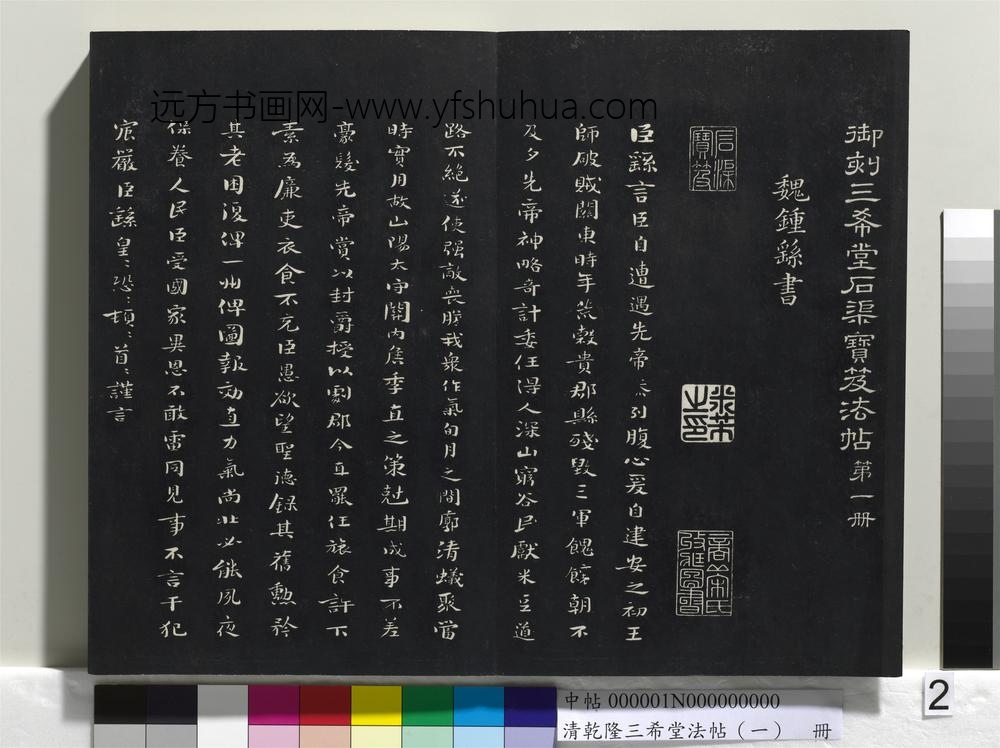 远方书画网-www.yfshuhua.com
御刻三希堂石渠寶笈法帖第一册
魏鍾繇書
石渠寶笈
米芾之印
臣繇言臣自遭遇先帝忝列腹心爰自建安之初王
師破賊關東時年荒穀貴郡縣殘毀三軍餽饟朝不
及夕先帝神略奇計委任得人深山窮谷民獻米豆道
路不絕遂使强敵喪膽我衆作氣旬月之間廓清蟻聚當
時實用故山陽太守關內侯季直之策尅期成事不差
豪髮先帝賞以封爵授以劇郡今直罷任旅食許下
素為廉吏衣食不充臣愚欲望聖德録其舊勲矜
其老困復俾一州俾圖報効直力氣尚壯必能夙夜
保養人民臣受國家異恩不敢雷同見事不言干犯
宸嚴臣繇皇〻恐〻頓〻首〻謹言
2
中帖 000001N000000000
清乾隆三希堂法帖（一） 册